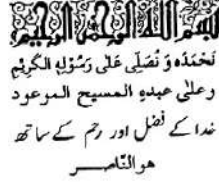 بسم الله الرحمن الرحيم
نَحْمَدُهٗ وَ نُصَلِّی عَلٰی رَسُوْلِهِ الْكَرِيْمِ
وعلٰی عبدهِ المسيح الموعود
خدا کے فضل اور رحم کے ساتھ
هوالنّاصر